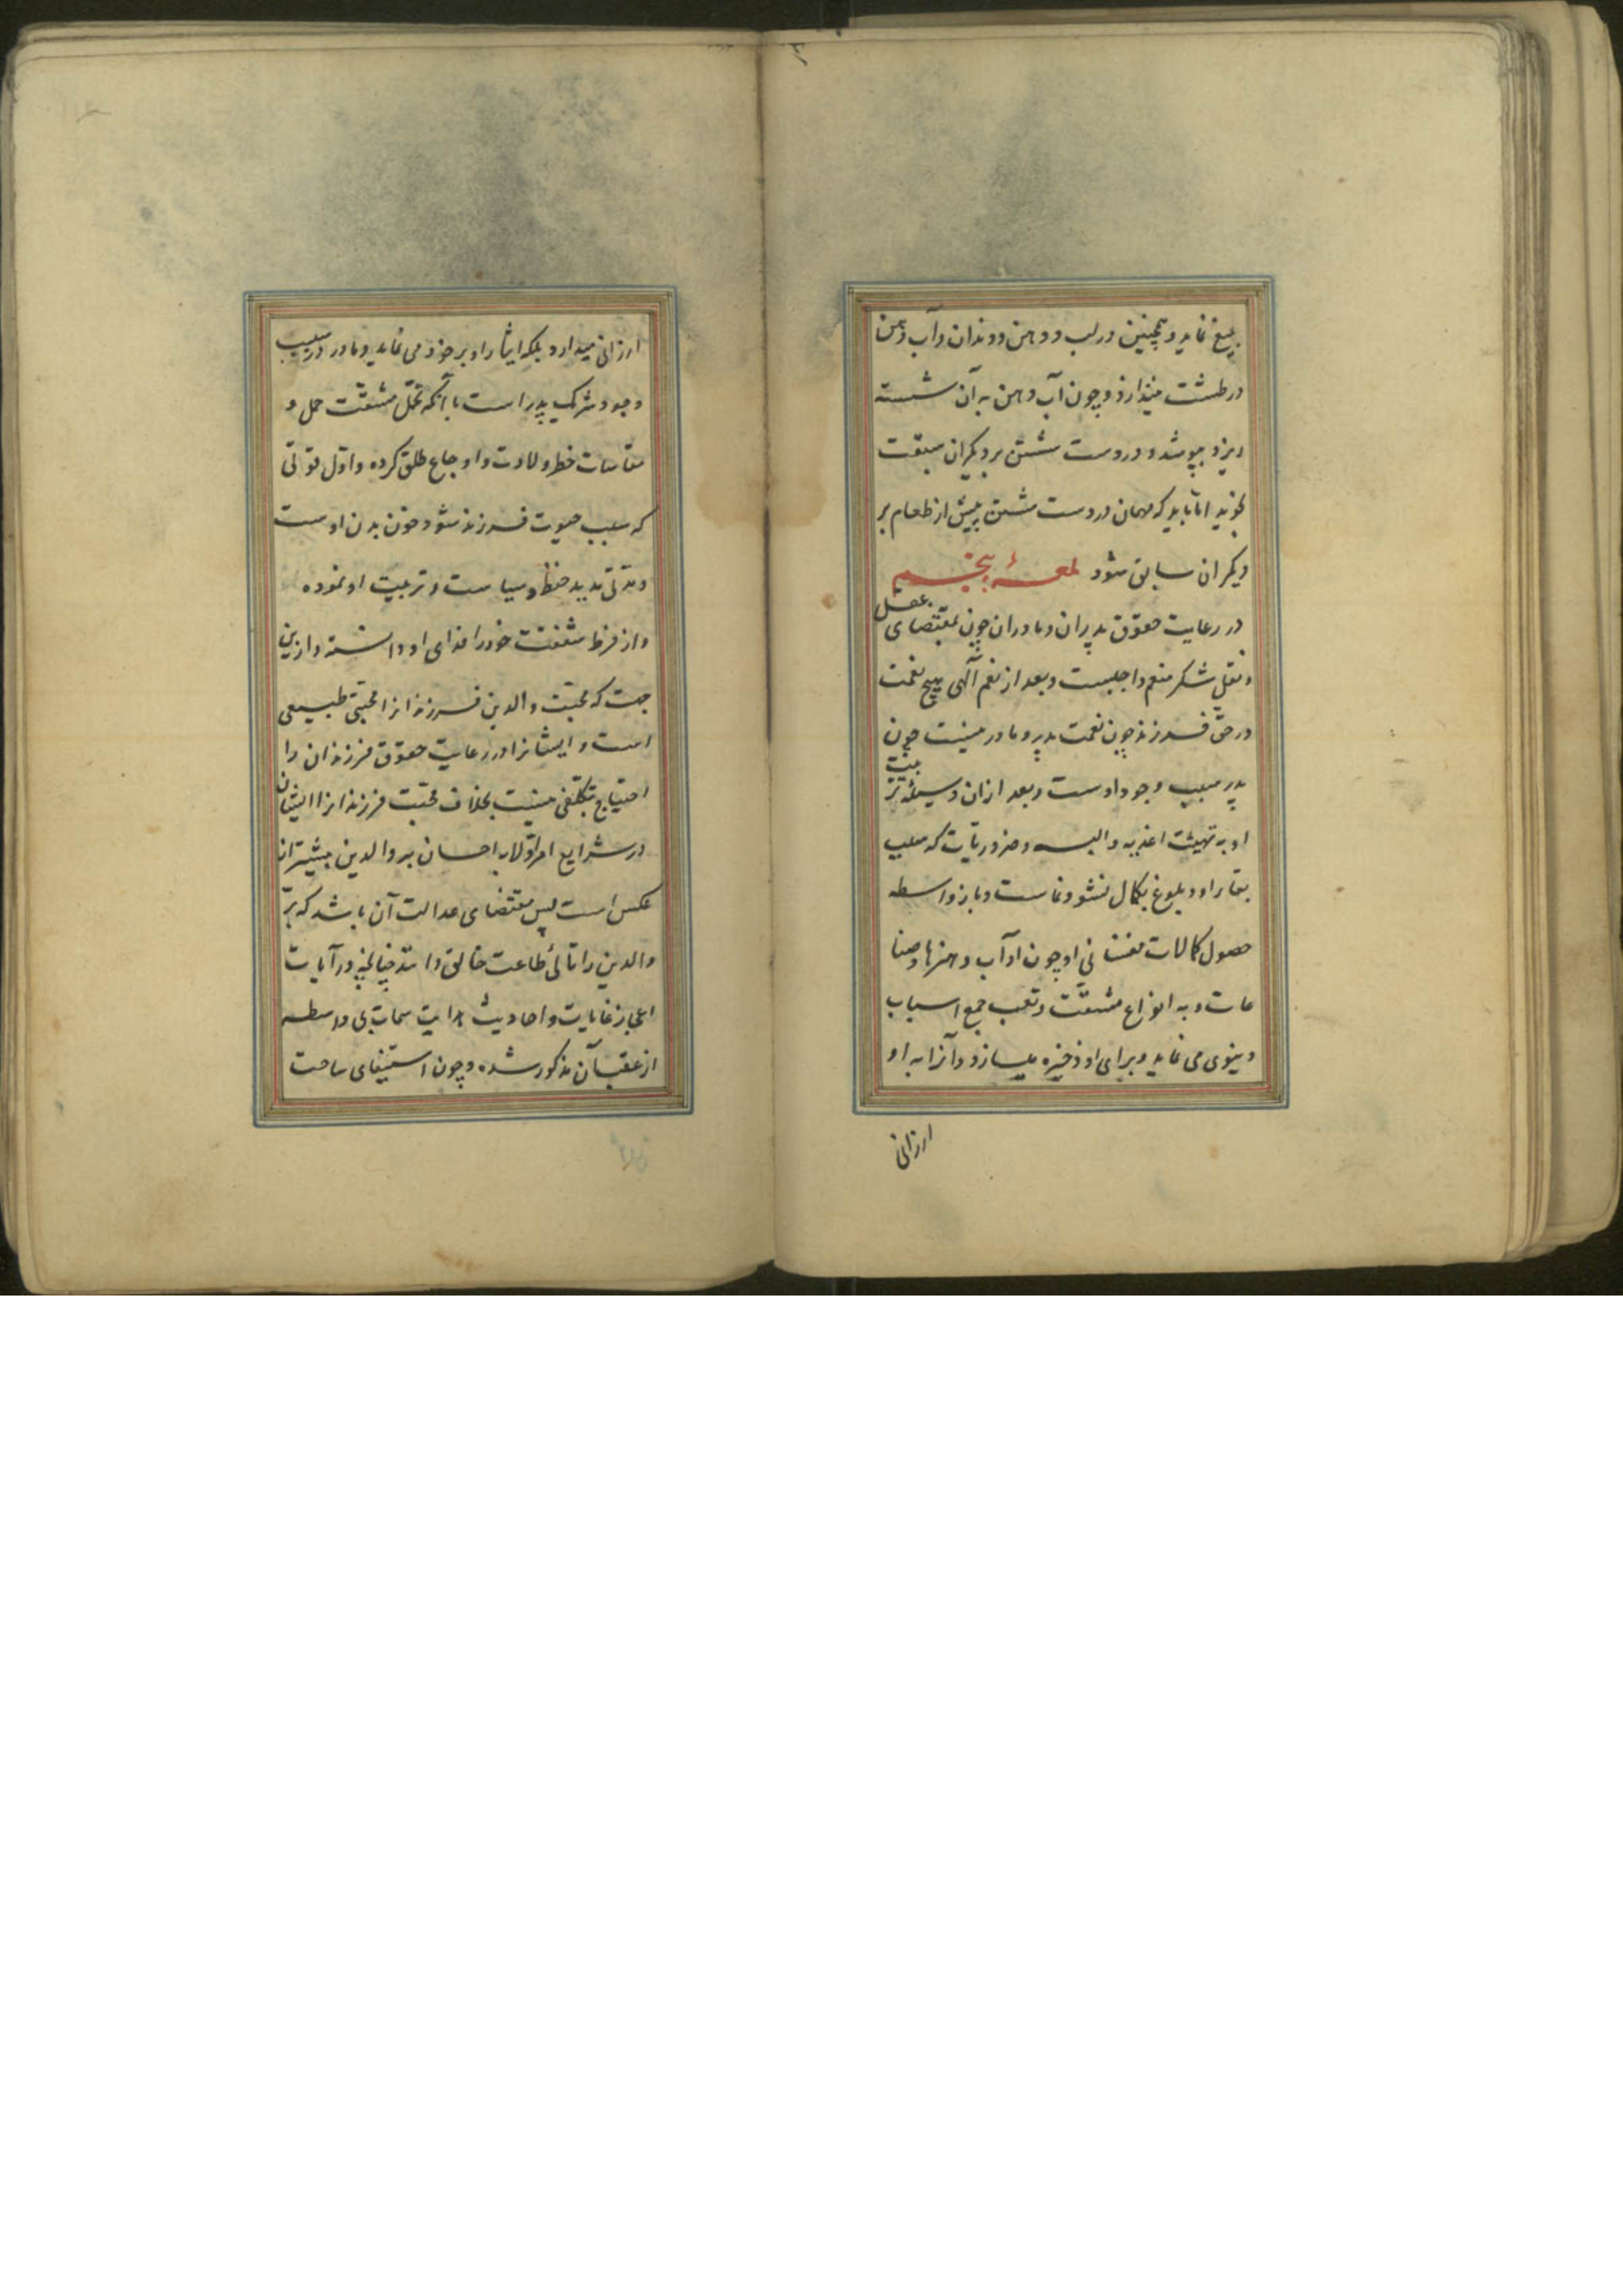 بلیغ نماید و همچنین در لب و دهن و دندان و آب دهن
در طشت نیندازد و چون آب دهن به آن شسته
ریزد بپوشد و در دست شستن بر دیگران سبقت
نجوید اما باید که مهمان در دست شستن پیش از طعام بر
دیگران سابق شود لمعهٔ پنجم
در رعایت حقوق پدران و مادران چون بمقتضای عقل
و نقل شکر منعم واجبست و بعد از نعم آلهی هیچ نعمت
در حق فرزند چون نعمت پدر و مادر نیست چون
پدر سبب وجود اوست و بعد ازان وسیلهٔ تربیت
او به تهیئت اغذیه و البسه و ضروریات که سبب
بقاء او و بلوغ بکمال نشو و نماست و باز واسطه
حصول کمالات نفسانی او چون آداب و هنرها و صنا
عات و به انواع مشقت و تعب جمع اسباب
دنیوی می نماید و برای او ذخیره میسازد و آنرا به او
ارزانی
ارزانی میدارد بلکه ایثار او بر خود می نماید و مادر در سبب
وجود شریک پدر است با آنکه تحمل مشقت حمل و
مقاسات خطر ولادت و اوجاع طلق کرده و اول قوتی
که سبب حیوت فرزند شود خون بدن اوست
و مدتی مدید حفظ و سیاست و تربیت او نموده
و از فرط شفقت خود را فدای او داشته و ازین
جهت که محبت والدین فرزندانرا محبتی طبیعی
است و ایشانرا در رعایت حقوق فرزندان را
احتیاج بتکلفی نیست بخلاف محبت فرزندانرا ایشان
در شرایع امر اولاد به احسان بر والدین بیشتر از
عکس است پس مقتضای عدالت آن باشد که بر
والدین را تالئ طاعت خالق دانند چنانچه در آیات
اعجاز غایات و احادیث هدایت سمات بی واسطه
از عقب آن مذکور شده و چون استیفای ساحت